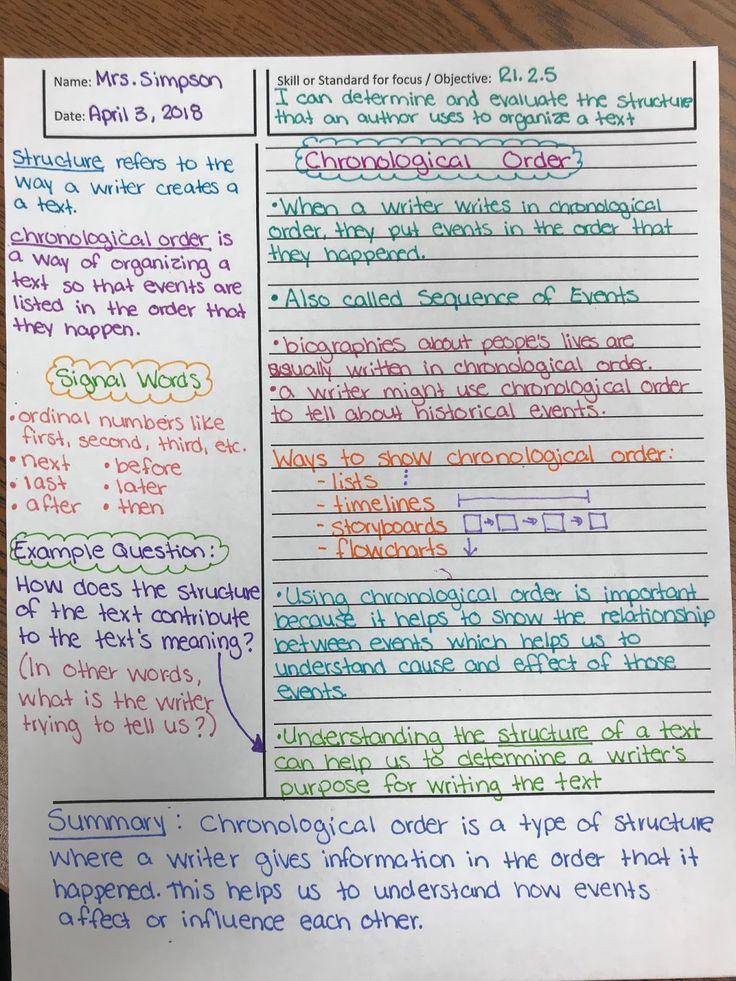 Name: Mrs. Simpson
Date: April 3, 2018
Skill or Standard for focus / Objective: RI. 2.5
I can determine and evaluate the structure
that an author uses to organize a text
Structure refers to the
way a writer creates a
a text.
chronological order is
a way of organizing a
text so that events are
listed in the order that
they happen.
Signal Words
• ordinal numbers like
first, second, third, etc.
• next • before
• last • later
• after • then
Example Question:
How does the structure
of the text contribute
to the text's meaning?
(In other words,
what is the writer
trying to tell us?)
Chronological Order
• When a writer writes in chronological
order, they put events in the order that
they happened.
• Also called Sequence of Events
• biographies about people's lives are
usually written in chronological order.
• a writer might use chronological order
to tell about historical events.
Ways to show chronological order:
- lists
- timelines
- storyboards
- flowcharts
• Using chronological order is important
because it helps to show the relationship
between events which helps us to
understand cause and effect of those
events.
• Understanding the structure of a text
can help us to determine a writer's
purpose for writing the text
Summary: Chronological order is a type of structure
where a writer gives information in the order that it
happened. This helps us to understand how events
affect or influence each other.